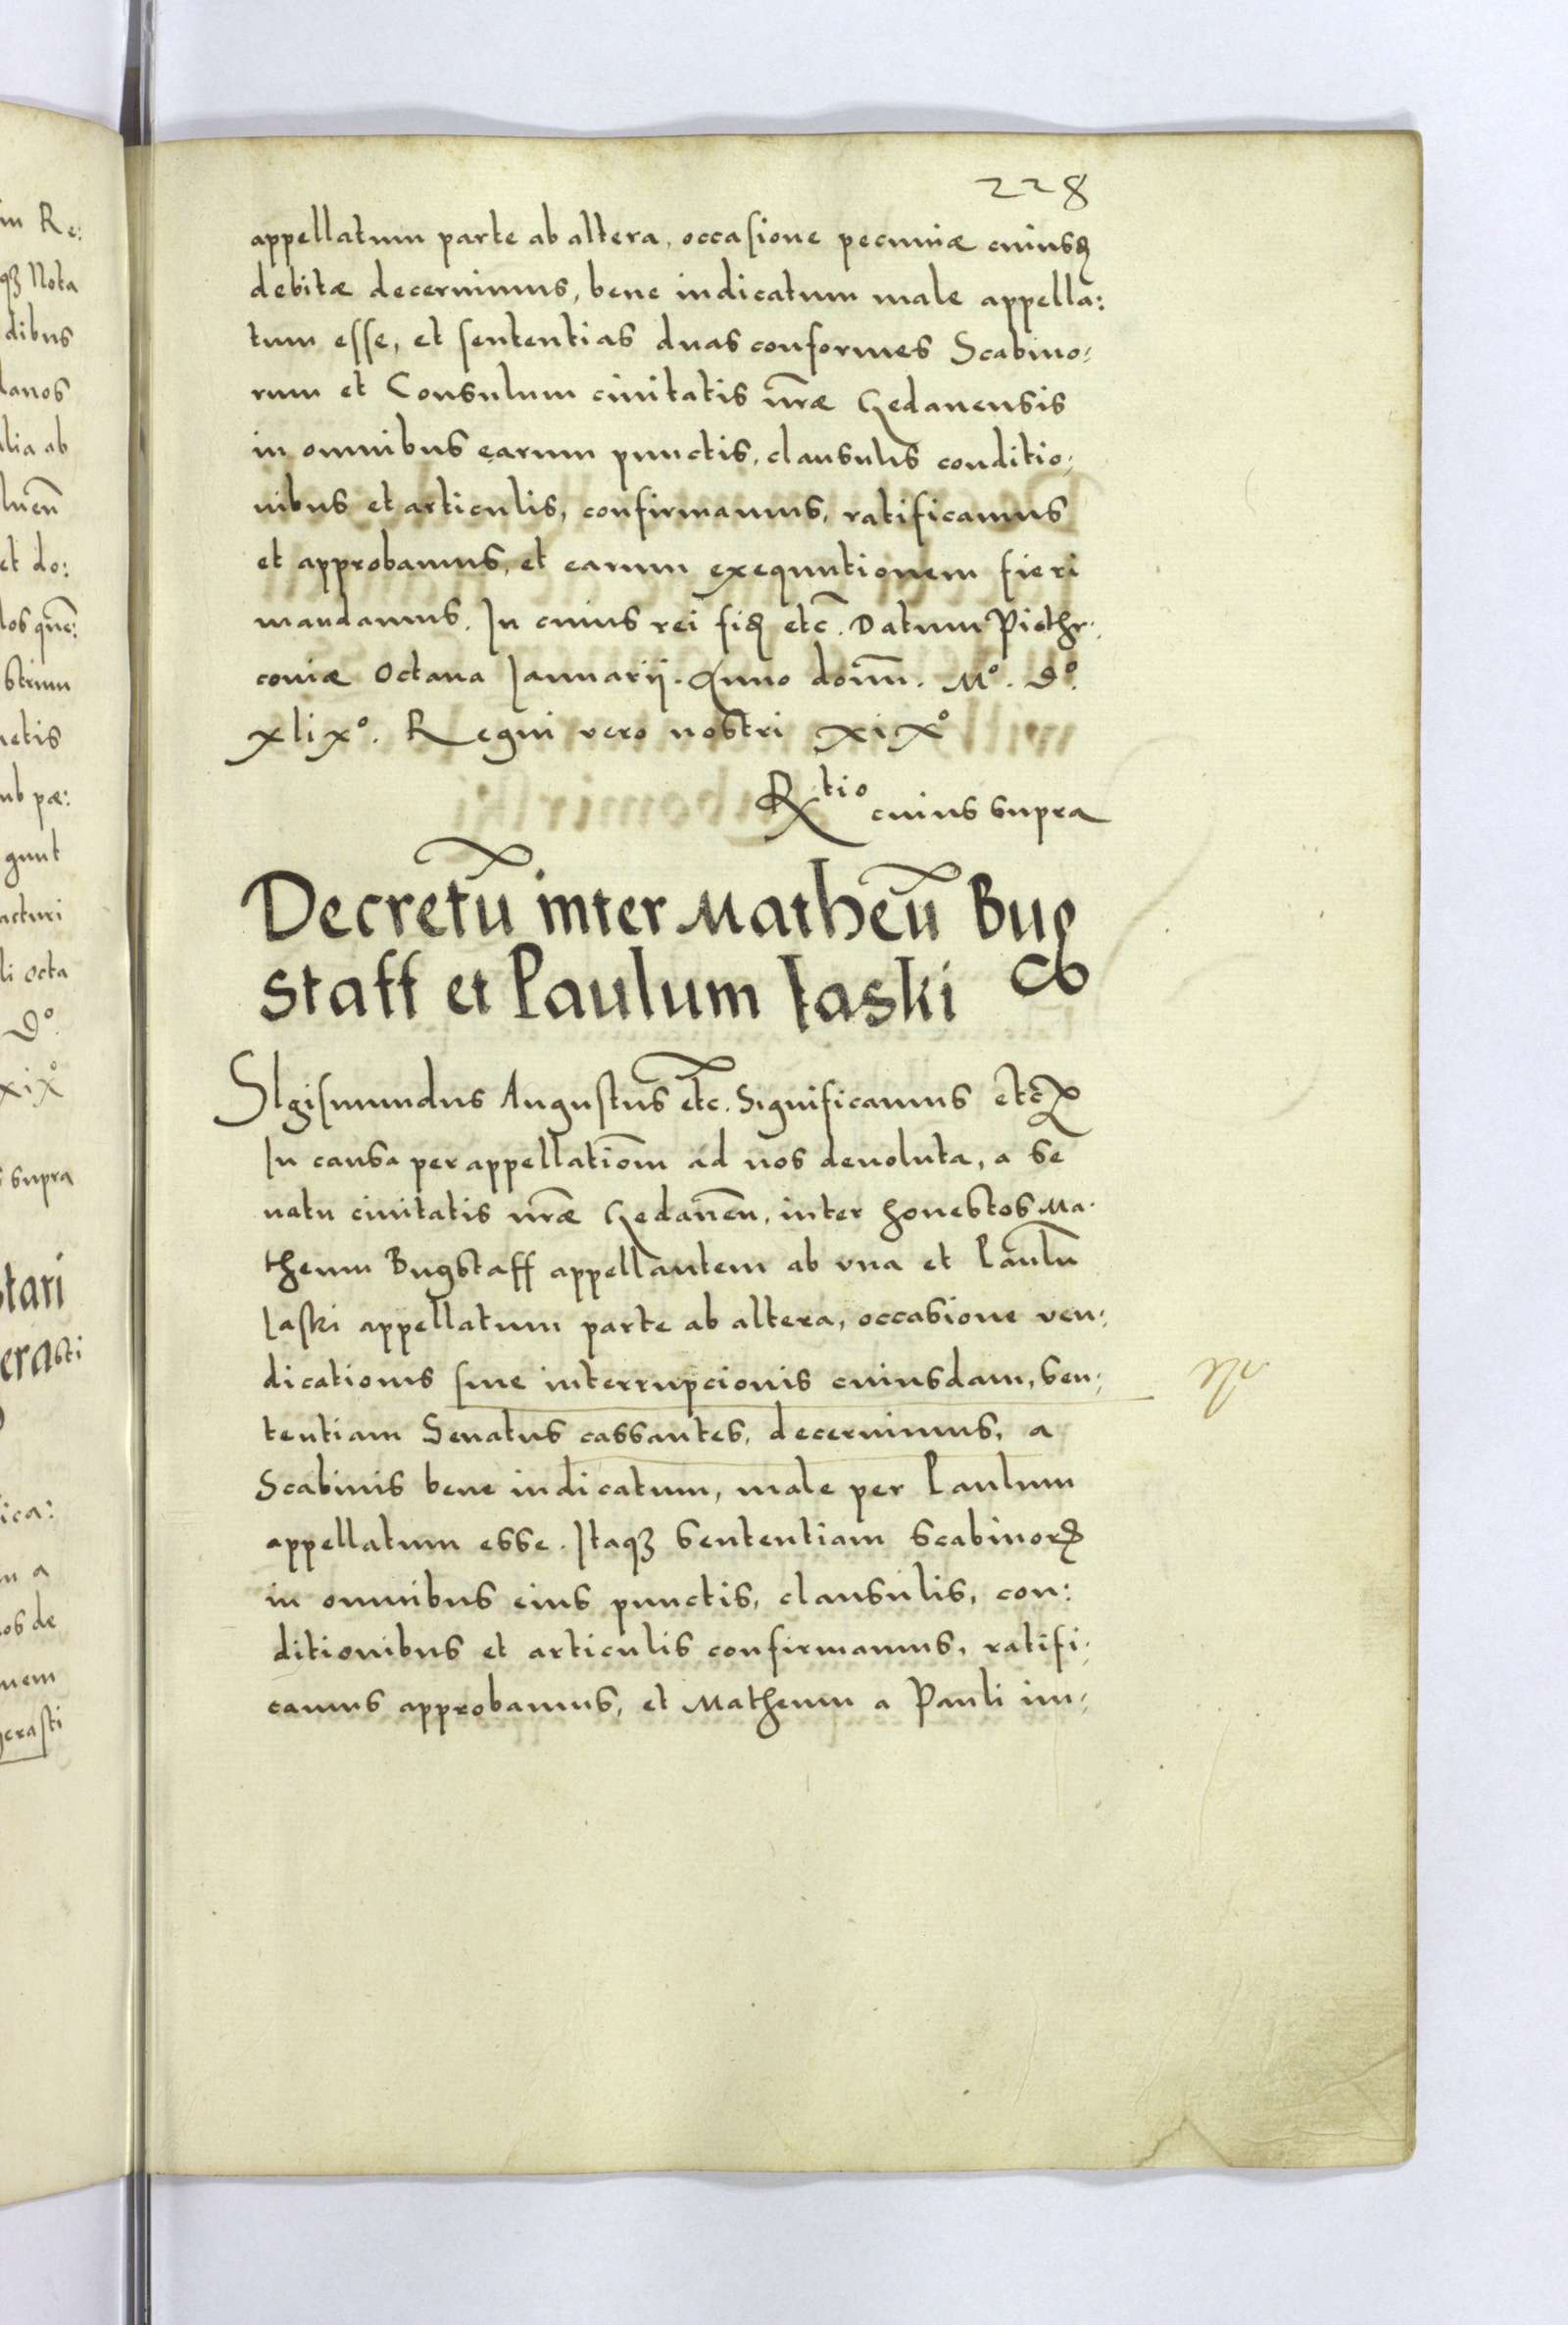 228
appellatum parte ab altera, occasione pecuniæ cuiusꝗ
debitæ decernimus, bene iudicatum male appella:
tum esse, et sententias duas conformes Scabino:
rum et Consulum ciuitatis nr̃æ Gedanensis
in omnibus earum punctis, clausulis conditio:
nibus et articulis, confirmamus, ratificamus
et approbamus, et earum exequutionem fieri
mandamus. In cuius rei fiꝗ etc̃. Datum Piothr:
coniæ Octaua Ianuarij. Anno domi. M°. D°.
xlix°. Regni vero nostri xix°
Rtio cuius supra
Decretũ inter Matheũ Bug
staff et Paulum Iaski
SIgismundus Augustus etc. Significamus etc
In causa per appellatiom̃ ad nos deuoluta, a se
natu ciuitatis nr̃æ Gedanen̄, inter honestos Ma:
theum Bugstaff appellantem ab vna et Paulũ
Iaski appellatum parte ab altera, occasione ven:
dicationis siue interrupcionis cuiusdam, sen:
tentiam Senatus cassantes, decernimus, a
Scabinis bene iudicatum, male per Paulum
appellatum esse. Itaqꝫ sententiam scabinorꝝ
in omnibus eius punctis, clausulis, con:
ditionibus et articulis confirmamus, ratifi:
camus approbamus, et Matheum a Pauli im:
in Re:
qꝫ Nota
dibus
lanos
lia ab
luen̄
et do:
los que:
strum
netis
ub pæ:
gunt
acturi
li octa
D°.
xix°
supra
stari
erasti
ica:
m a
os de
nem
erasti